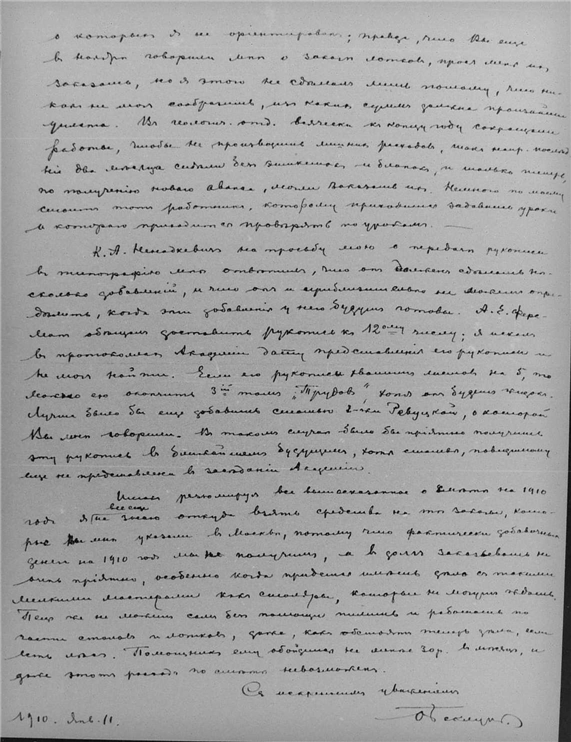 о которыхъ я не орiентированъ; правда, что Вы еще
въ ноябрѣ говорили мнѣ о заказѣ лотковъ, прося меня ихъ
заказать, но я этого не сдѣлалъ лишь потому, что ни-
какъ не могъ сообразить, изъ какихъ суммъ должна произойти
уплата. Въ геологич. отд. всячески къ концу году сокращали
работы, чтобы не производить лишнихъ расходовъ, такъ напр. послѣд-
нiе два мѣсяца сидѣли безъ этикетокъ и бланковъ, и только теперь,
по полученiю новаго аванса, могли заказать ихъ. Немного по моему
стоитъ тотъ работникъ, которому приходится задавать уроки
и котораго приходится провѣрять по урокамъ. —
К. А. Ненадкевичъ на просьбу мою о передачѣ рукописи
въ типографiю мнѣ отвѣтилъ, что онъ долженъ сдѣлать нѣ-
сколько добавленiй, и что онъ и приблизительно не можетъ опре-
дѣлить, когда эти добавленiя у него будутъ готовы. А. Е. Ферс-
манъ обѣщалъ доставить рукопись къ 12ому числу; я искалъ
въ протоколахъ Академiи дату представленiя его рукописи и
не могъ найти. Если его рукописи хватитъ листовъ на 5, то
можно ею окончить 3iй томъ „Трудовъ“, хотя онъ будетъ
Лучше было бы еще добавить статью г-жи Ревуцкой, о которой
Вы мнѣ говорили. Въ такомъ случаѣ было бы прiятно получить
эту рукопись въ ближайшемъ будущемъ, хотя статья, повидимому
еще не представлена въ засѣданiи Академiи.
Итакъ резюмируя все вышесказанное о смѣтѣ на 1910
годъ я все еще не знаю откуда взять средства на тѣ заказы, кото-
рые Вы мнѣ указали въ Москвѣ, потому что фактически добавочныхъ
денегъ на 1910 годъ мы не получили, а въ долгъ заказывать не
очень прiятно, особенно когда придется имѣть дѣло съ такими
мелкими мастерами какъ столяры, которые не могутъ ждать.
же не можетъ самъ безъ помощи пилить и работать по
части становъ и лотковъ, даже, какъ обстоятъ теперь дѣла, если
есть лотки. Помощникъ ему обойдется не менѣе 30р. въ мѣсяцъ, и
даже этотъ расходъ по смѣтѣ невозможенъ.
Съ искреннимъ уваженiемъ
1910. Янв. 11.